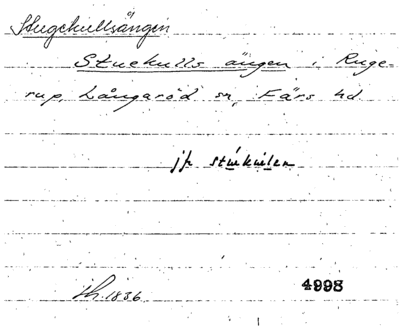 Stugekullsängen
Stuekulls ängen i Ruge-
rup, Långaröd sn, Färs hd
jfr stúkulen
1836
4998